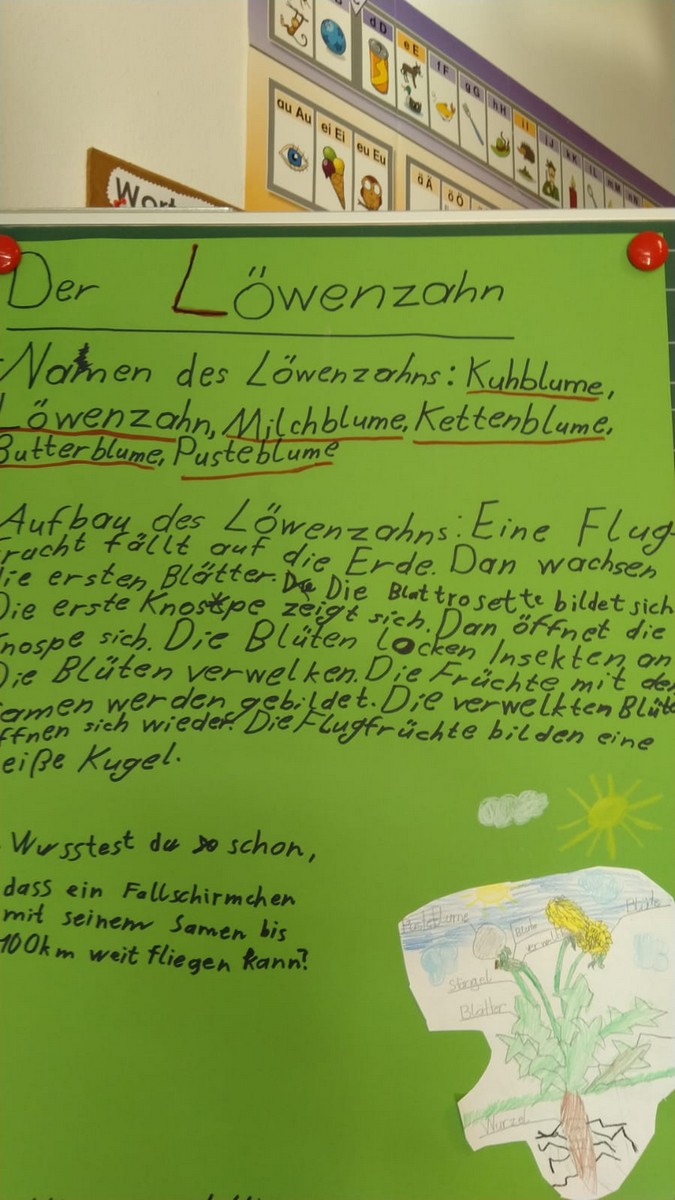 d D
e E
f F
g G
h H
i I
j J
k K
l L
m M
au Au
ei Ei
eu Eu
ä Ä
ö Ö
Wort
Der Löwenzahn
Namen des Löwenzahns: Kuhblume,
Löwenzahn, Milchblume, Kettenblume,
Butterblume, Pusteblume
Aufbau des Löwenzahns: Eine Flug-
frucht fällt auf die Erde. Dan wachsen
die ersten Blätter. Die Blattrosette bildet sich
Die erste Knospe zeigt sich. Dan öffnet die
Knospe sich. Die Blüten locken Insekten an
Die Blüten verwelken. Die Früchte mit den
Samen werden gebildet. Die verwelkten Blüte
öffnen sich wieder. Die Flugfrüchte bilden eine
eiße Kugel.
Wusstest du schon,
dass ein Fallschirmchen
mit seinem Samen bis
100km weit fliegen kann?
Pusteblume
Stängel
Blätter
Wurzel